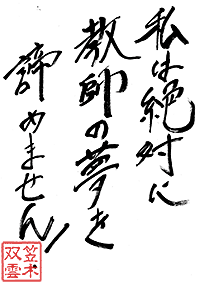 私は絶対に
教師の夢を
諦めません!
笠木
双雲